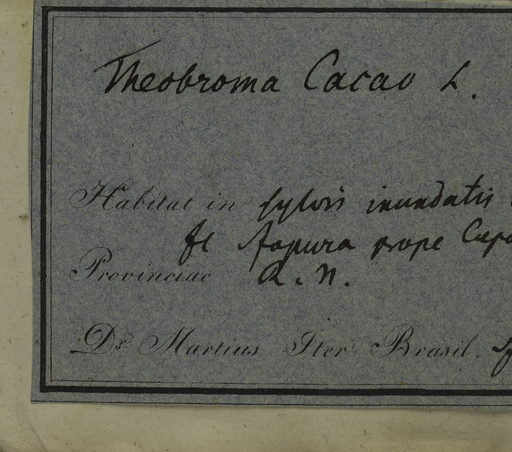 Theobroma Cacao L.
Habitat in sylvis inundatis
fl Japura prope Cupa
Provinciae R. N.
Dr. Martius Iter Brasil.